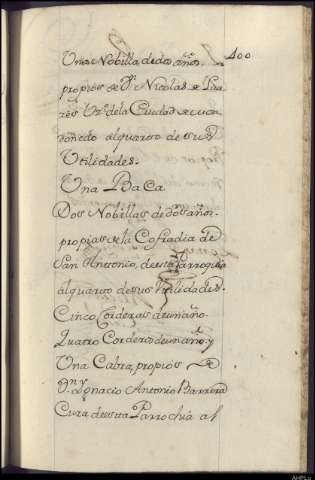 400
Una Nobilla de dos años.
propios de Dn. Nicolas de
res Vzo. de la Ciudad de
doñedo alquarso de sus
Utilidades.
Una BaCa
Dos Nobillas de dos años.
propias de la Cofradia de
San Antonio, de esta Parroquia
alquarso de sus Utilidades.
Cinco Corderas de un año.
Quatro Corderos de un año. y
Una Cabra, propios de
Dn. Ygnacio Antonio Barrera
Cura de esta Parrochia al
AHPLu